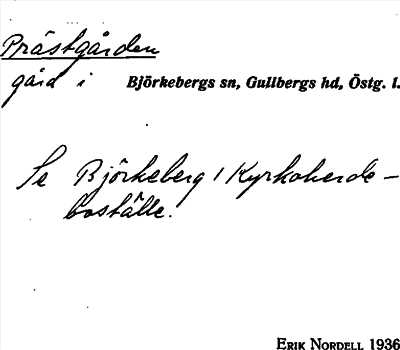 Prästgården
gård i Björkebergs sn, Gullbergs hd, Östg. l.
Se Björkeberg, Kyrkoherde-
boställe.
ERIK NORDELL 1936